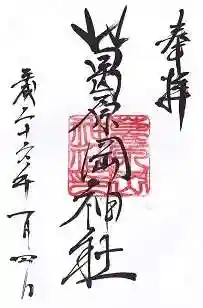 奉拝
葛原岡神社
平成二十六年一月四日